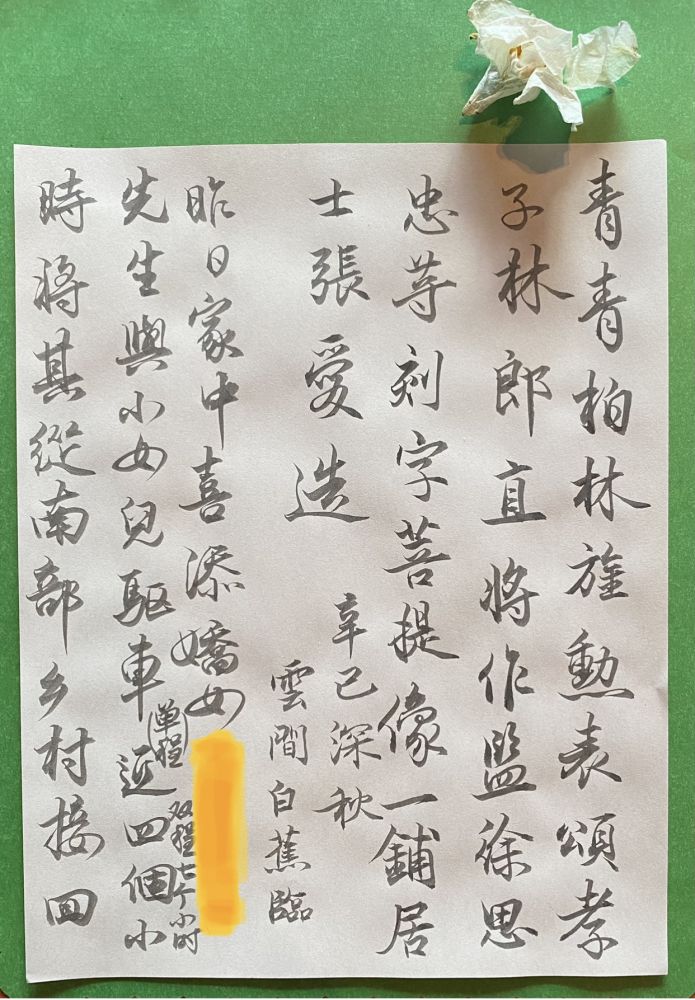 青青柏林旌勲表頌孝
子林郎直將作監徐思
忠等刻字菩提像一鋪居
士張愛造
辛已深秋
雲間白蕉臨
昨日家中喜添嬌女
先生與小女兒驱車(单程)近四個小
双程七个小时
時將其從南部乡村接回